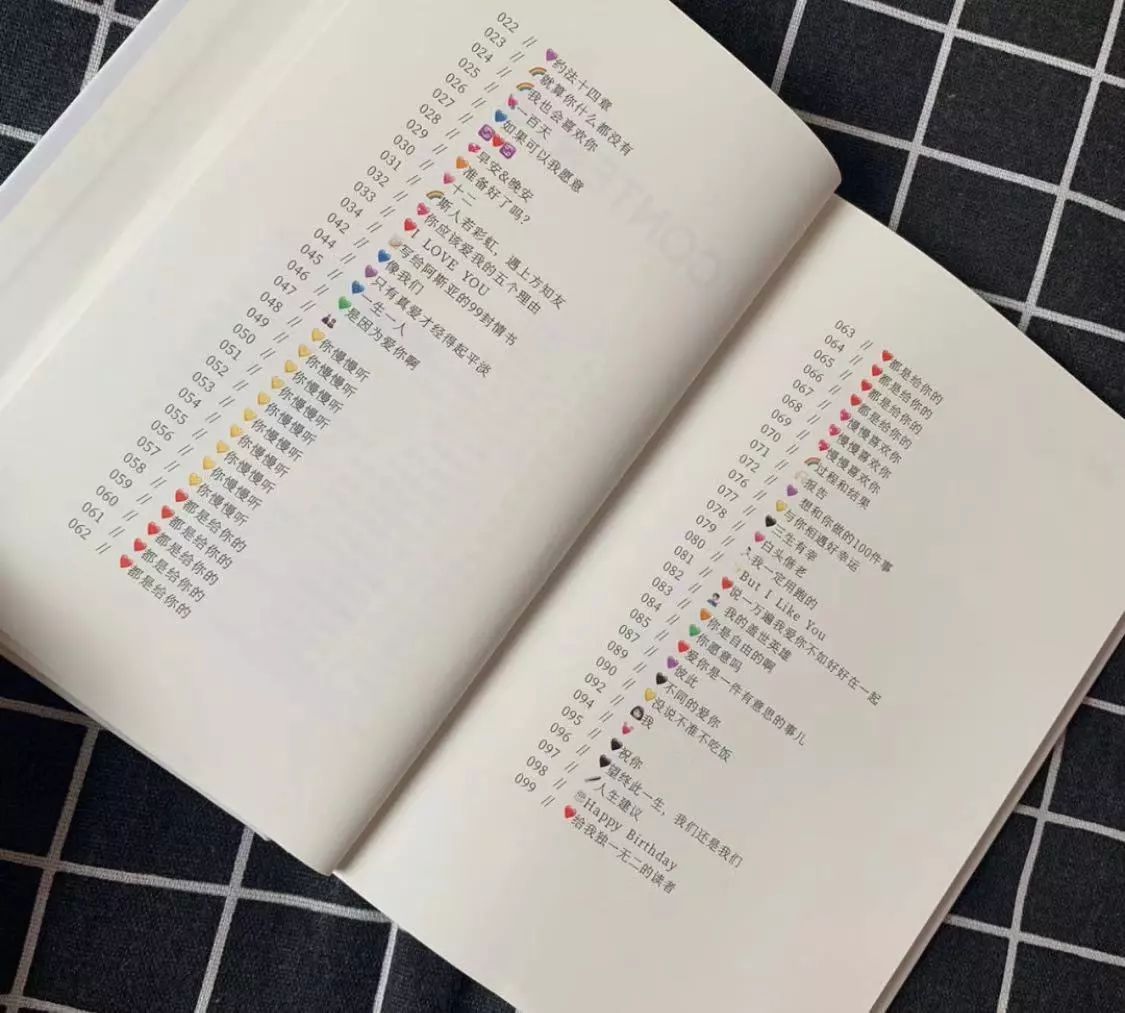 022 // 💜约法十四章
023 // 🌈就算你什么都没有
024 // 🌈我也会喜欢你
025 // 💘一百天
026 // 💙如果可以我愿意
027 //
028 // 💞早安&晚安
029 // 🧡准备好了吗?
030 // 💗十二
031 // 🌈斯人若彩虹，遇上方知友
032 // 💖你应该爱我的五个理由
034 // ❤I LOVE YOU
042 // 写给阿斯亚的99封情书
044 // 💙像我们
045 // 💜只有真爱才经得起平淡
046 // 💙一生一人
047 // 💚是因为爱你啊
048 //
049 // 💛你慢慢听
050 // 💛你慢慢听
051 // 💛你慢慢听
052 // 💛你慢慢听
053 // 💛你慢慢听
054 // 💛你慢慢听
055 // 💛你慢慢听
056 // 💛你慢慢听
057 // 💛你慢慢听
058 // ❤都是给你的
059 // ❤都是给你的
060 // ❤都是给你的
061 // ❤都是给你的
062 // ❤都是给你的
063 // ❤都是给你的
064 // ❤都是给你的
065 // ❤都是给你的
066 // ❤都是给你的
067 // 💖慢慢喜欢你
068 // 💖慢慢喜欢你
069 // 💖慢慢喜欢你
070 // 🌈过程和结果
071 // 报告
072 // 💜想和你做的100件事
076 // 💛与你相遇好幸运
077 // 🖤三生有幸
078 // 💗白头偕老
079 // 我一定用跑的
080 // But I Like You
081 // ❤说一万遍我爱你不如好好在一起
082 // 我的盖世英雄
083 // 🧡你是自由的啊
084 // 💚你愿意吗
085 // ❤爱你是一件有意思的事儿
087 // 💜彼此
089 // 🖤不同的爱你
090 // 💛没说不准不吃饭
092 // 我
094 // 💘
095 // 🖤祝你
096 // 🖤望终此一生，我们还是我们
097 // 人生建议
098 // Happy Birthday
099 // ❤给我独一无二的读者